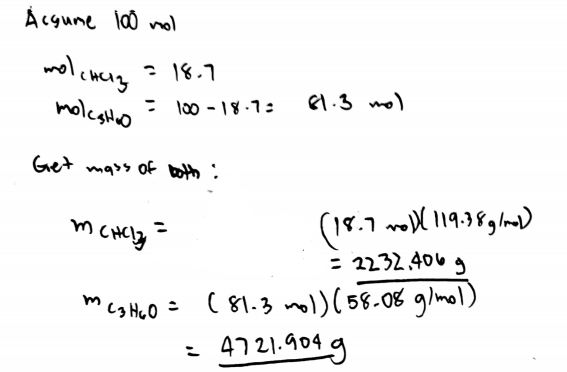 Assume 100 mol
mol CHCl3 = 18.7
mol C3H6O = 100 - 18.7 = 81.3 mol
Get mass of both :
m CHCl3 = (18.7 mol)(119.38 g/mol)
= 2232.406 g
m C3H6O = (81.3 mol)(58.08 g/mol)
= 4721.904 g